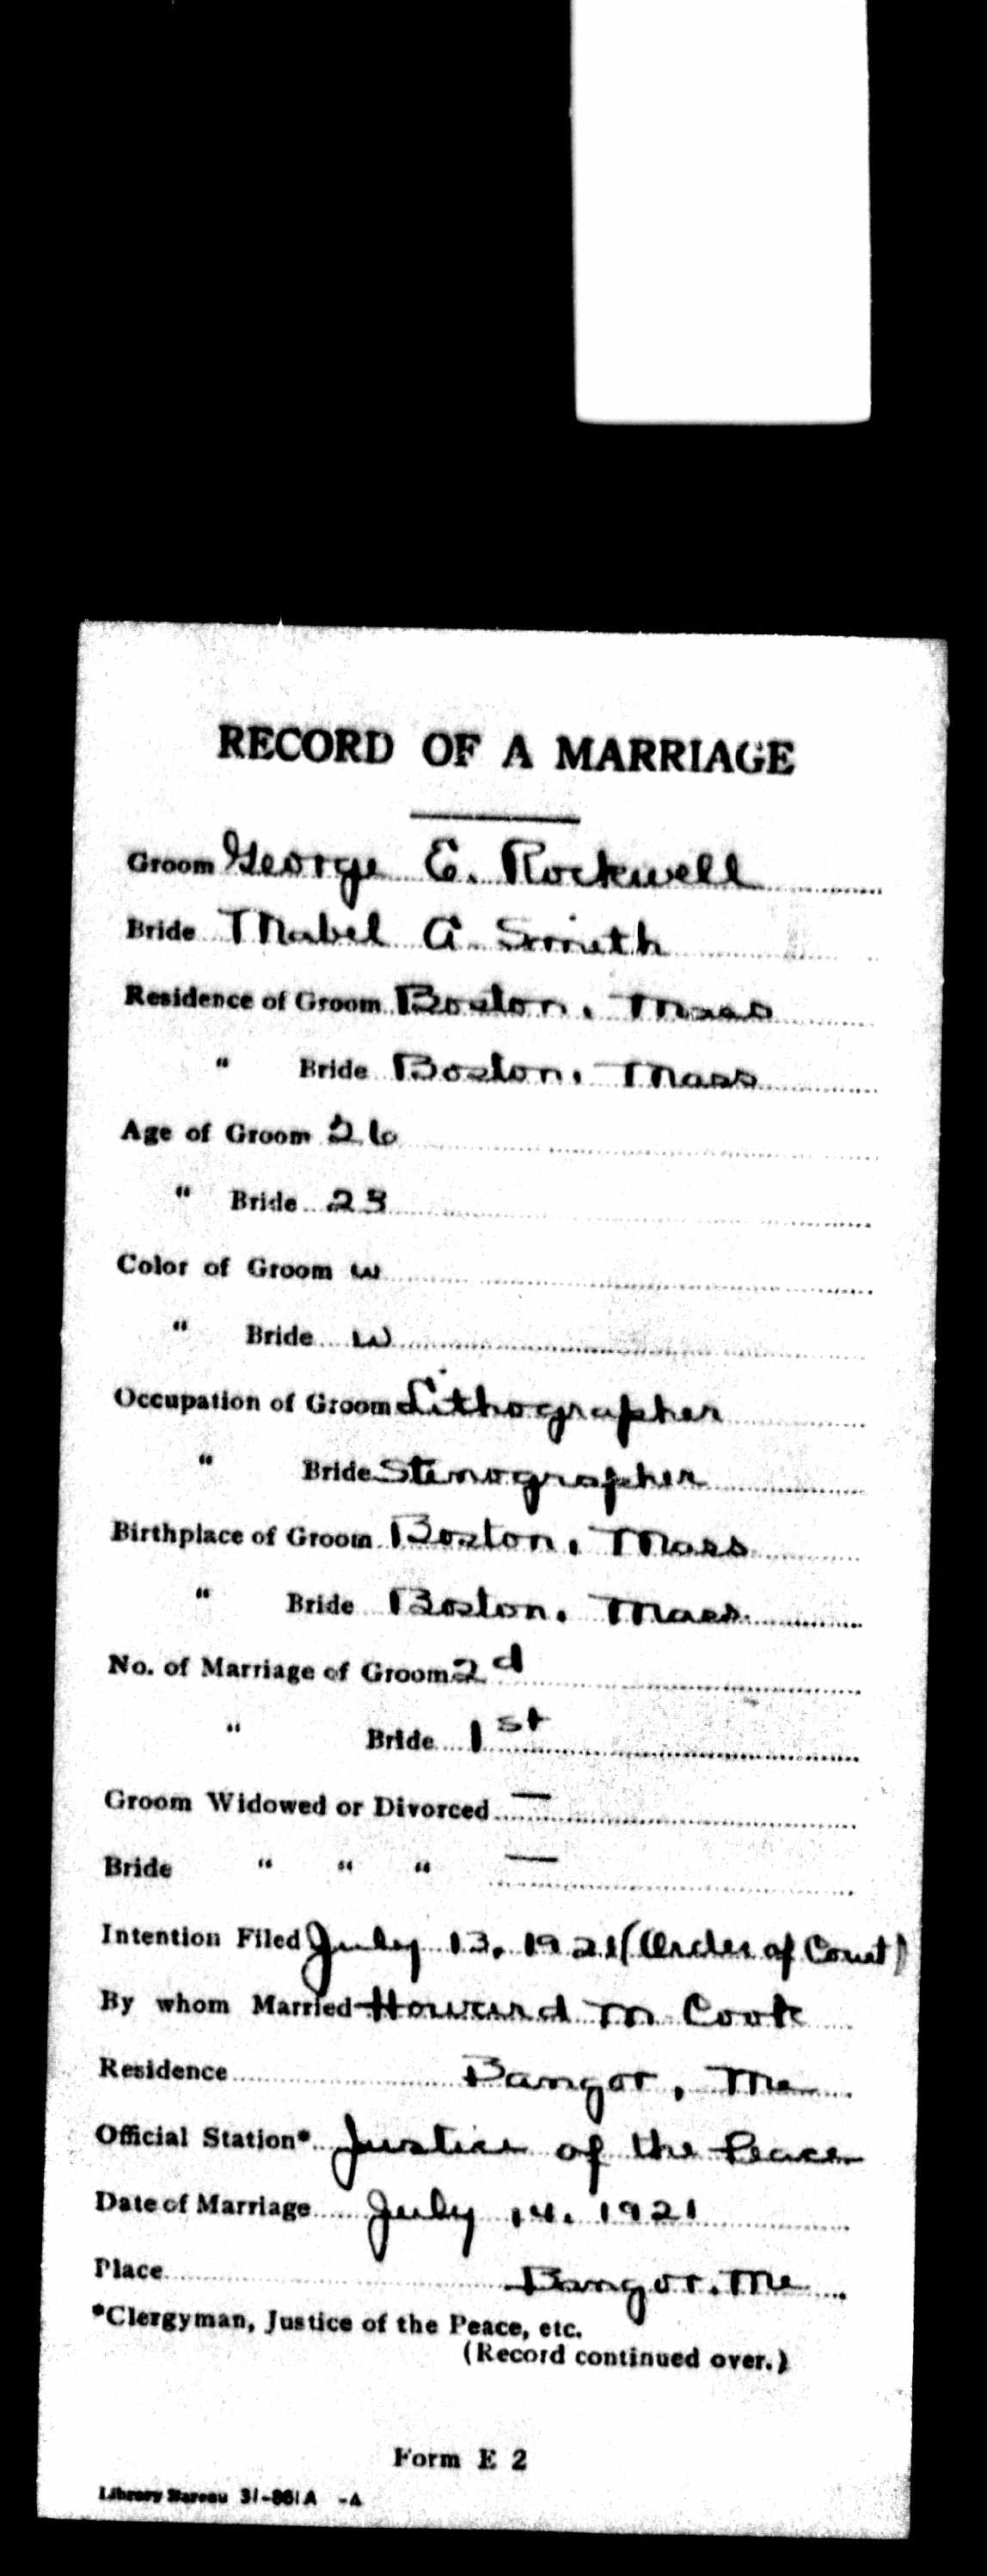 RECORD OF A MARRIAGE
Groom George E. Rockwell
Bride Mabel A. Smith
Residence of Groom Boston, Mass
" Bride Boston, Mass
Age of Groom 26
" Bride 23
Color of Groom w
" Bride w
Occupation of Groom Lithographer
" Bride Stenographer
Birthplace of Groom Boston, Mass
" Bride Boston, Mass.
No. of Marriage of Groom 2d
" Bride 1st
Groom Widowed or Divorced —
Bride " " " —
Intention Filed July 13, 1921 (Order of Court)
By whom Married Howard M Cook
Residence Bangor, Me
Official Station* Justice of the Peace
Date of Marriage July 14, 1921
Place Bangor, Me
*Clergyman, Justice of the Peace, etc.
(Record continued over.)
Form E 2
Library Bureau 31-861A -A